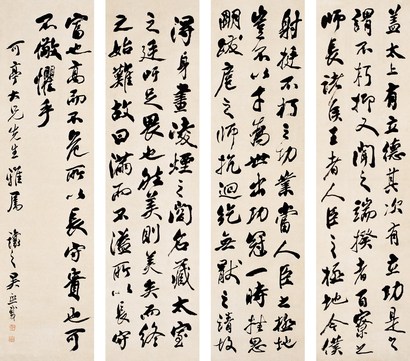 蓋太上有立德其次有立功是之
謂不朽抑又聞之端揆者百寮之
師長諸侯王者人臣之極地今僕
射挺不朽之功業當人臣之極地
豈不以才為世出功冠一時挫思
明跋扈之師抗迴紇無猒之請故
得身畫凌煙之閣名藏太室
之廷吁足畏也然美則美矣而終
之始難故曰滿而不溢所以長守
富也高而不危所以長守貴也可
不儆懼乎
可亭大兄先生雅属
讓之吳熙載